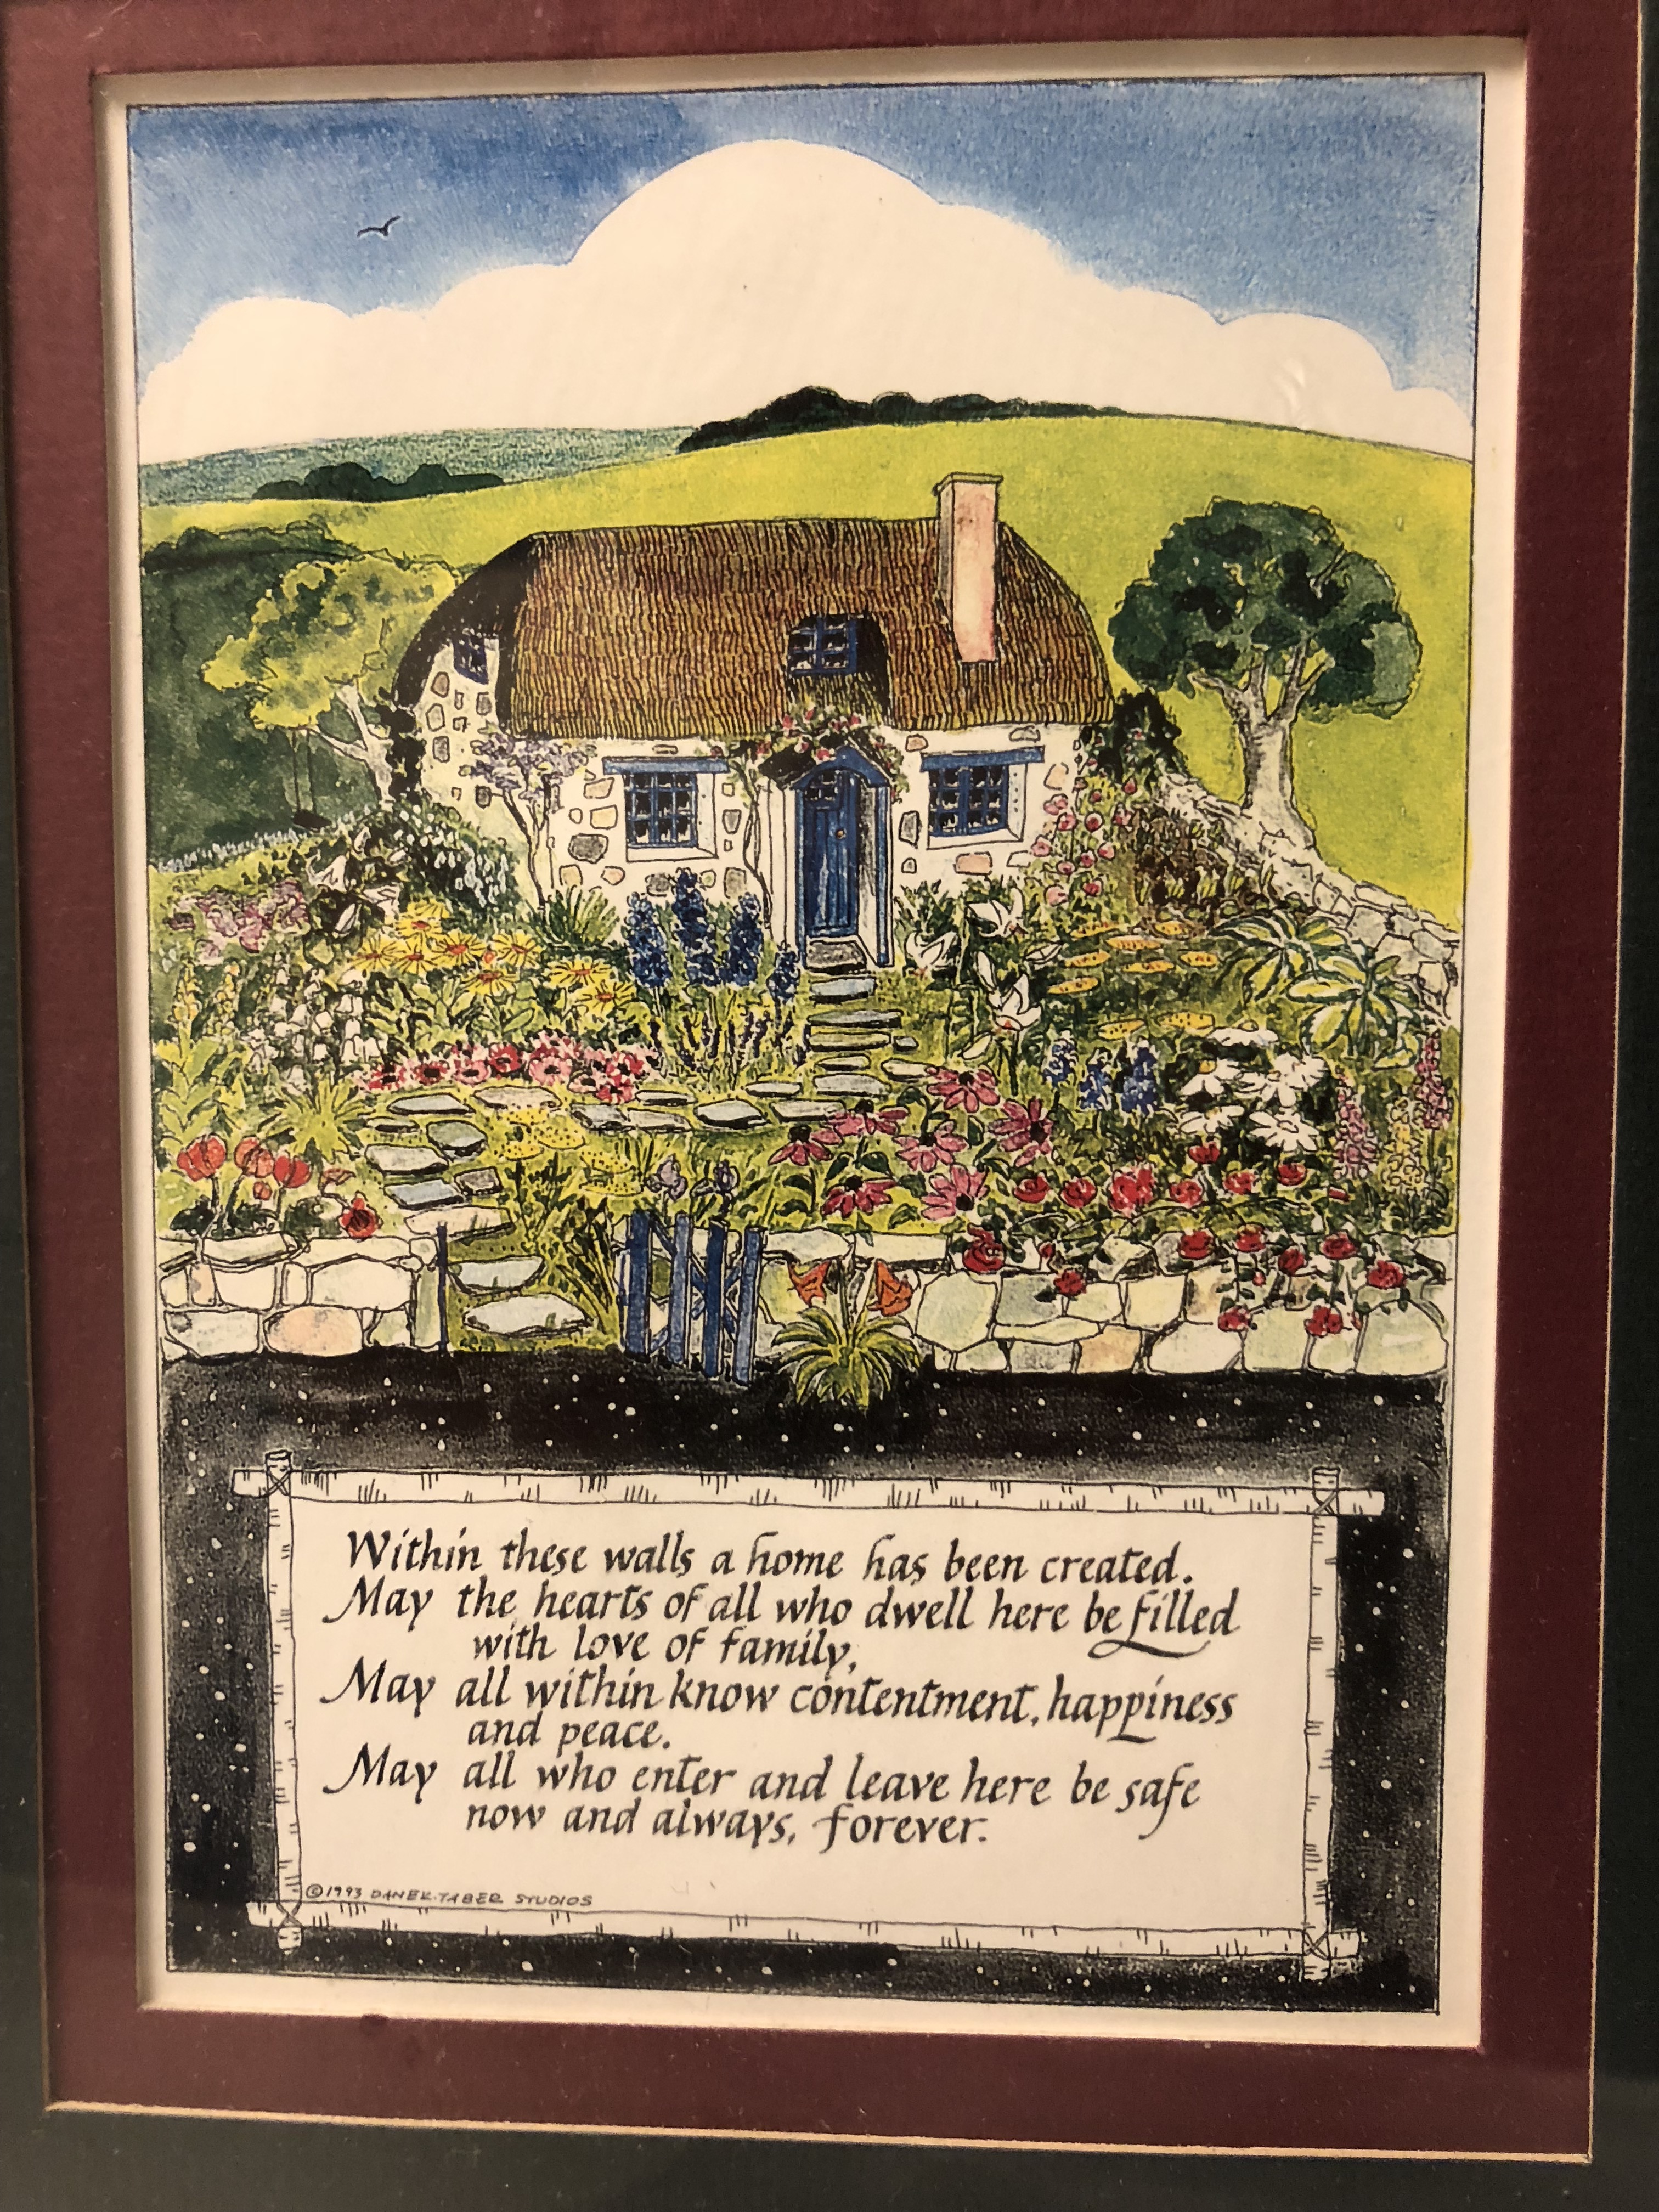 Within these walls a home has been created.
May the hearts of all who dwell here be filled
with love of family,
May all within know contentment, happiness
and peace.
May all who enter and leave here be safe
now and always, forever.
©1993 DANEK-TABER STUDIOS